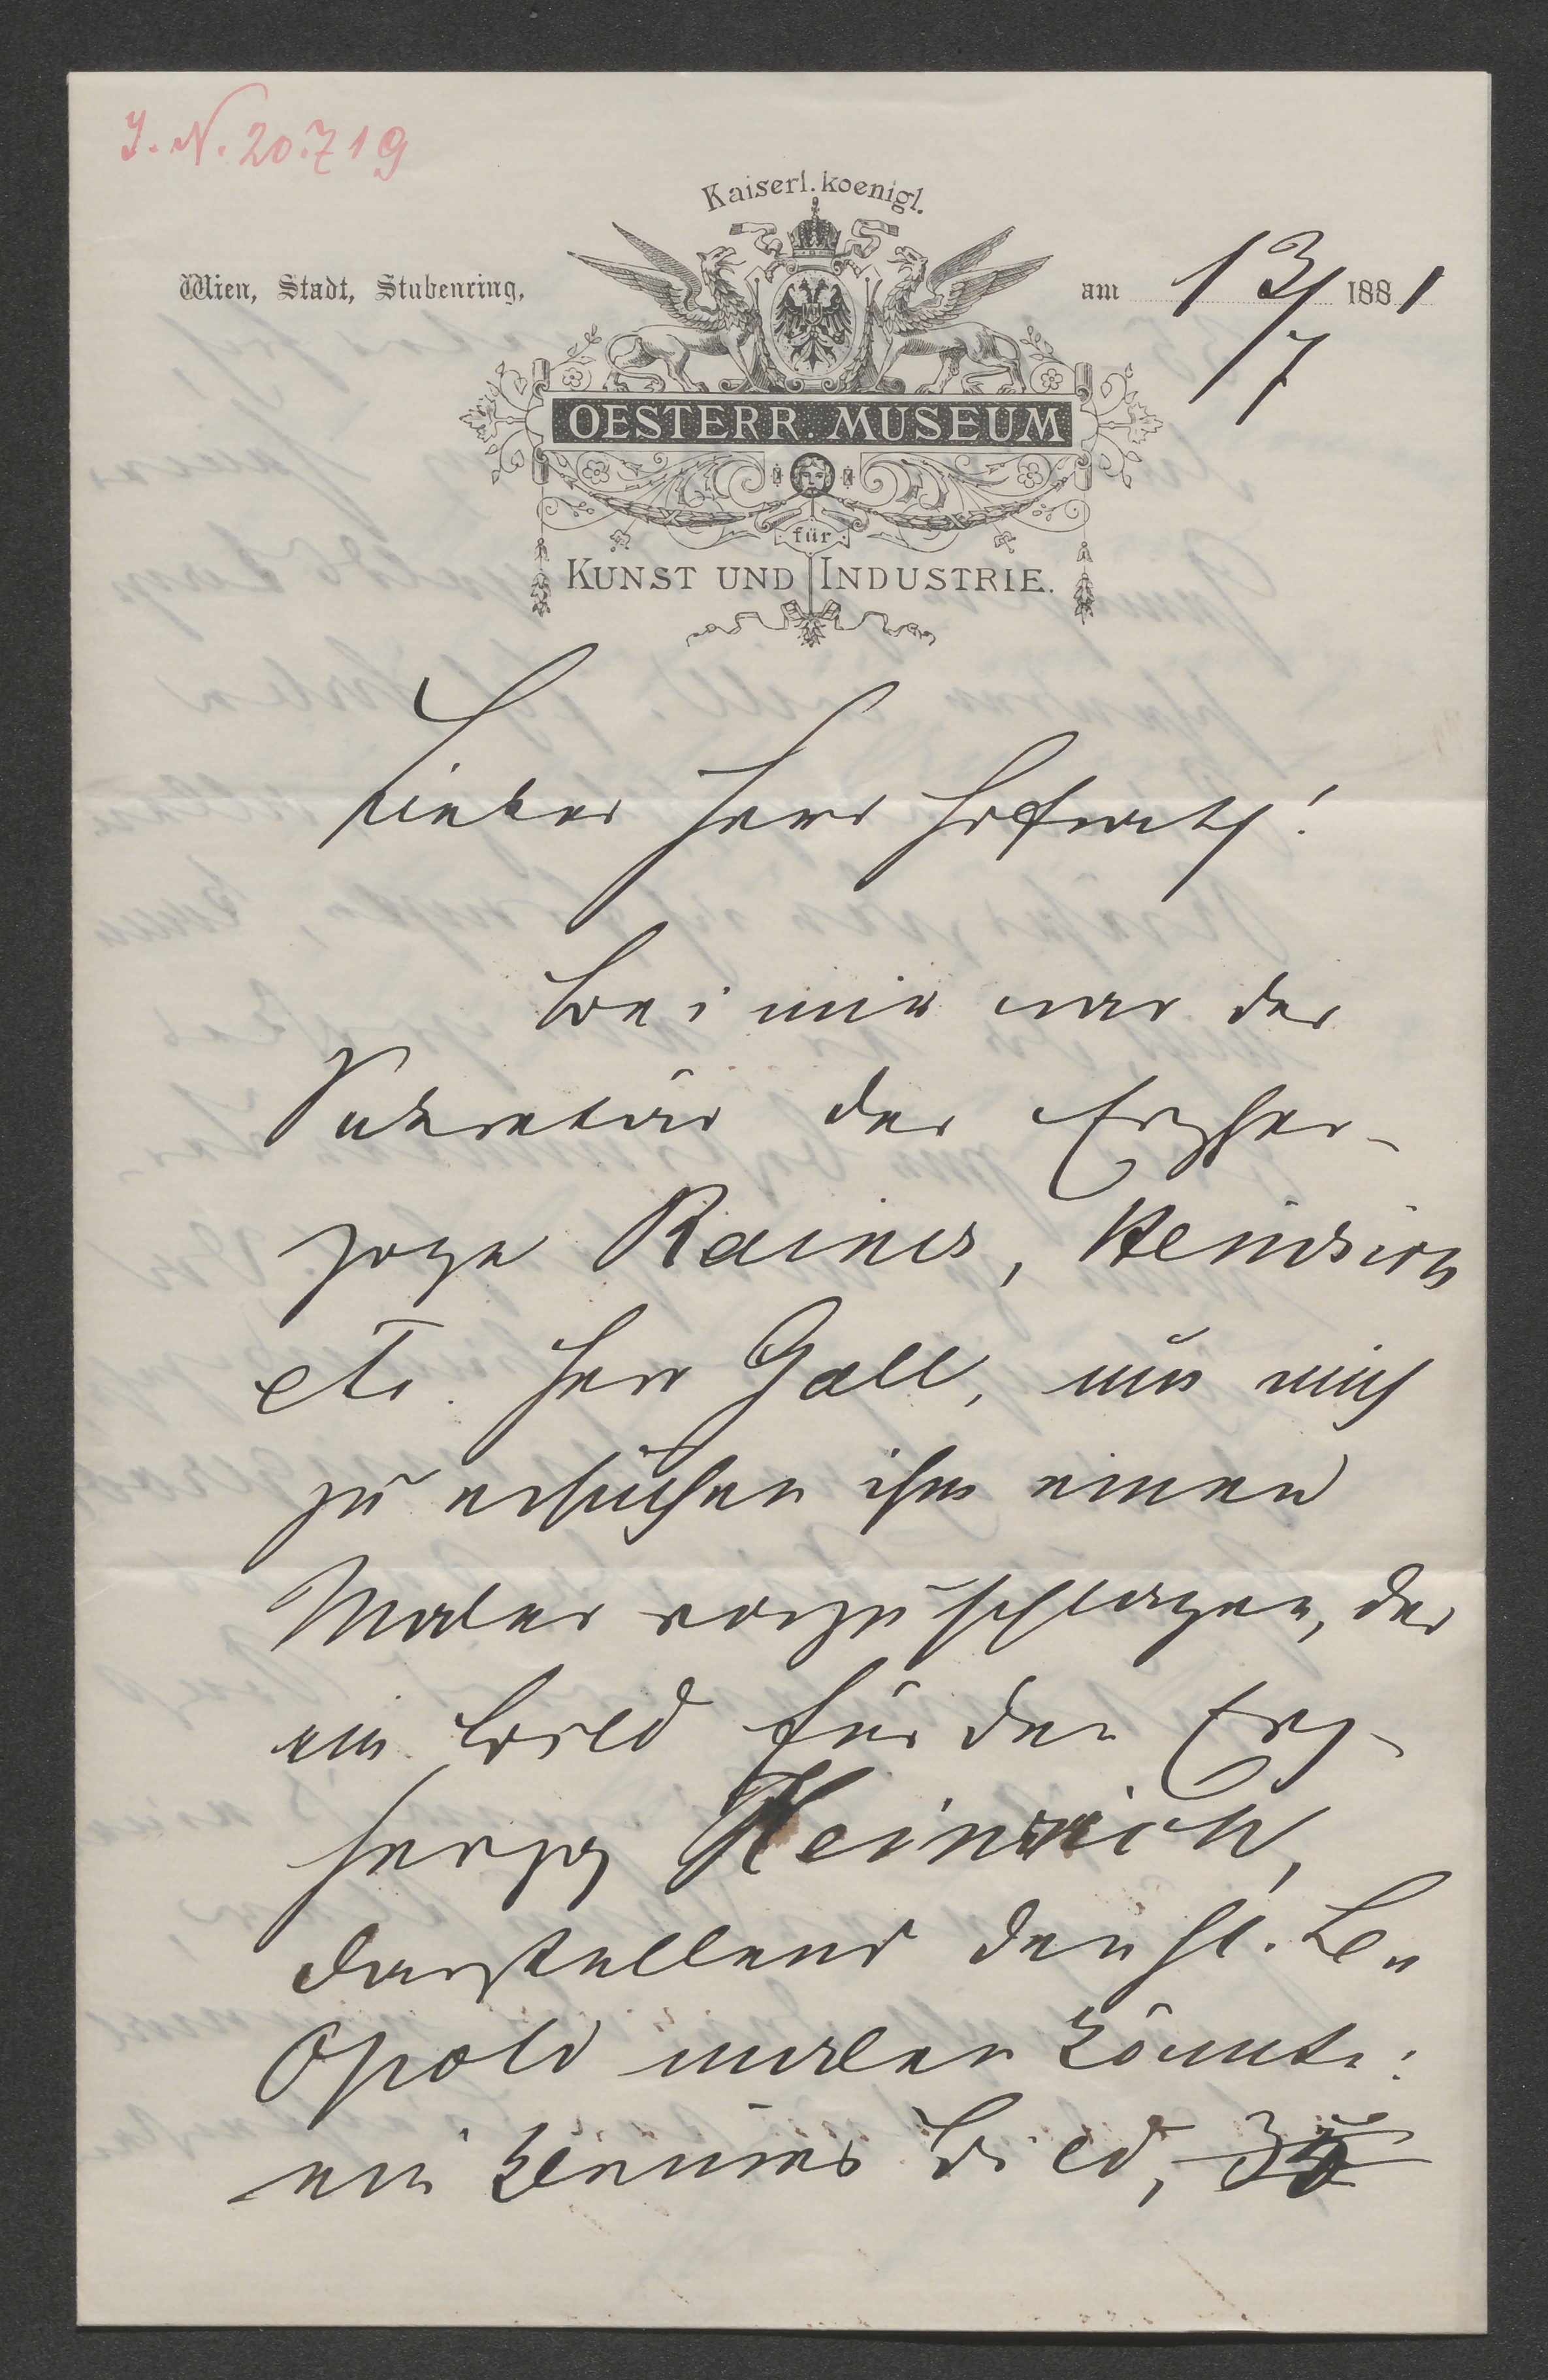 J. N. 20.719
Kaiserl. koenigl.
Wien, Stadt, Stubenring,
am 13/7 1881
OESTERR. MUSEUM
für
KUNST UND INDUSTRIE.
Lieber Herr Hofrath!
bei mir war der
Sekretär der Erzher-
zoge Rainer, Heinrich
etc. Herr Gall, um mich
zu ersuchen ihm einen
Maler vorzuschlagen, der
ein Bild für den Erz-
herzog Heinrich,
darstellend den hl. Le-
opold malen könnte:
ein kleines Bild,